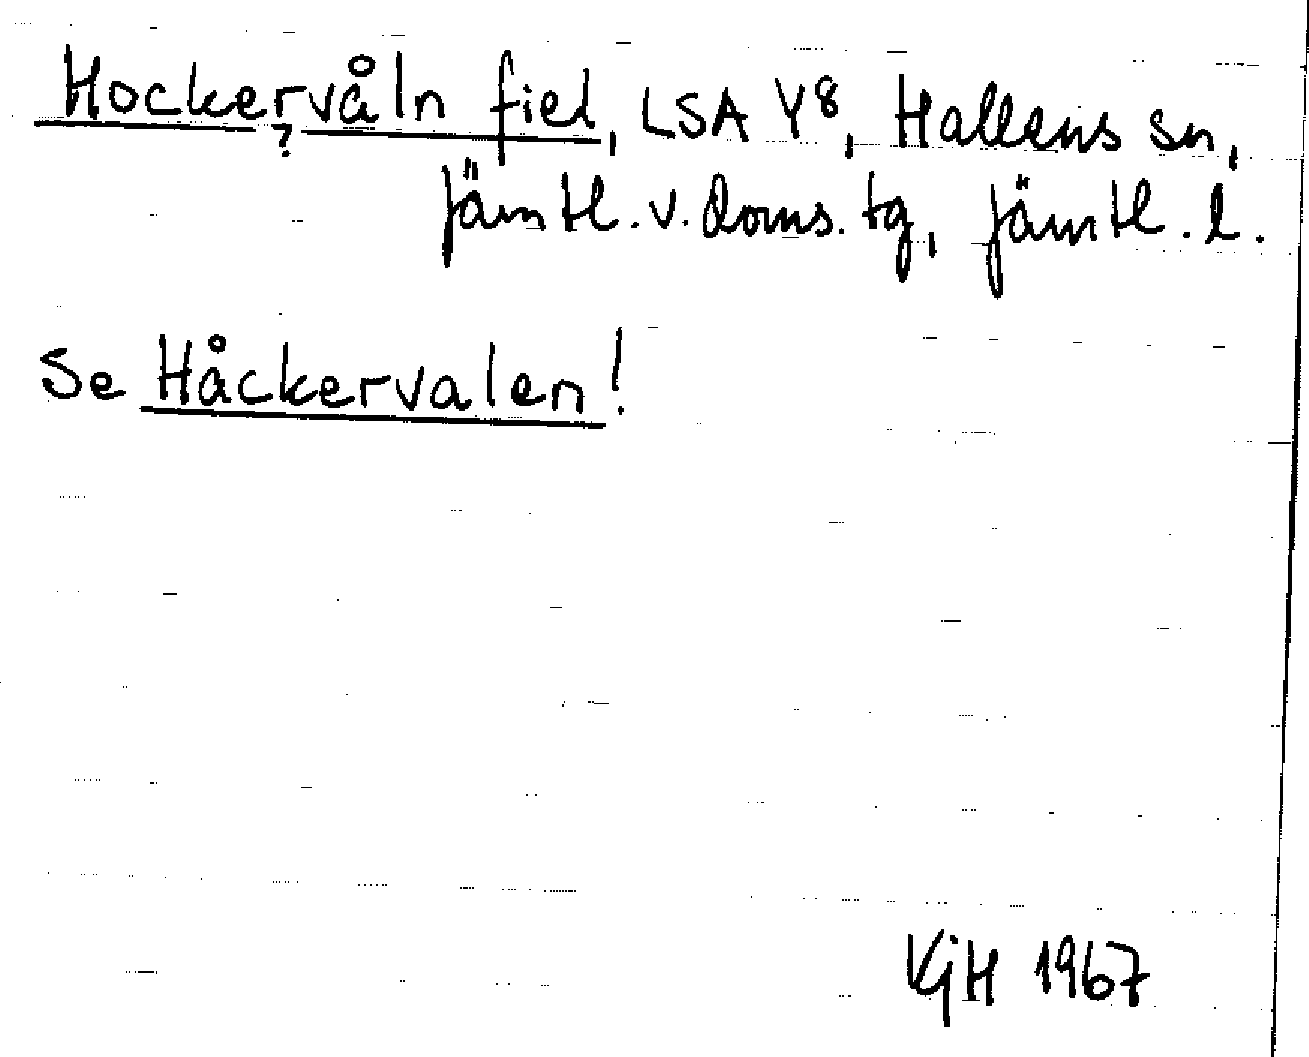 Hockervåln fiel, LSA Y8, Hallens sn,
?
Jämtl. v. doms. tg, Jämtl. l.
Se Håckervalen!
VGjH 1967